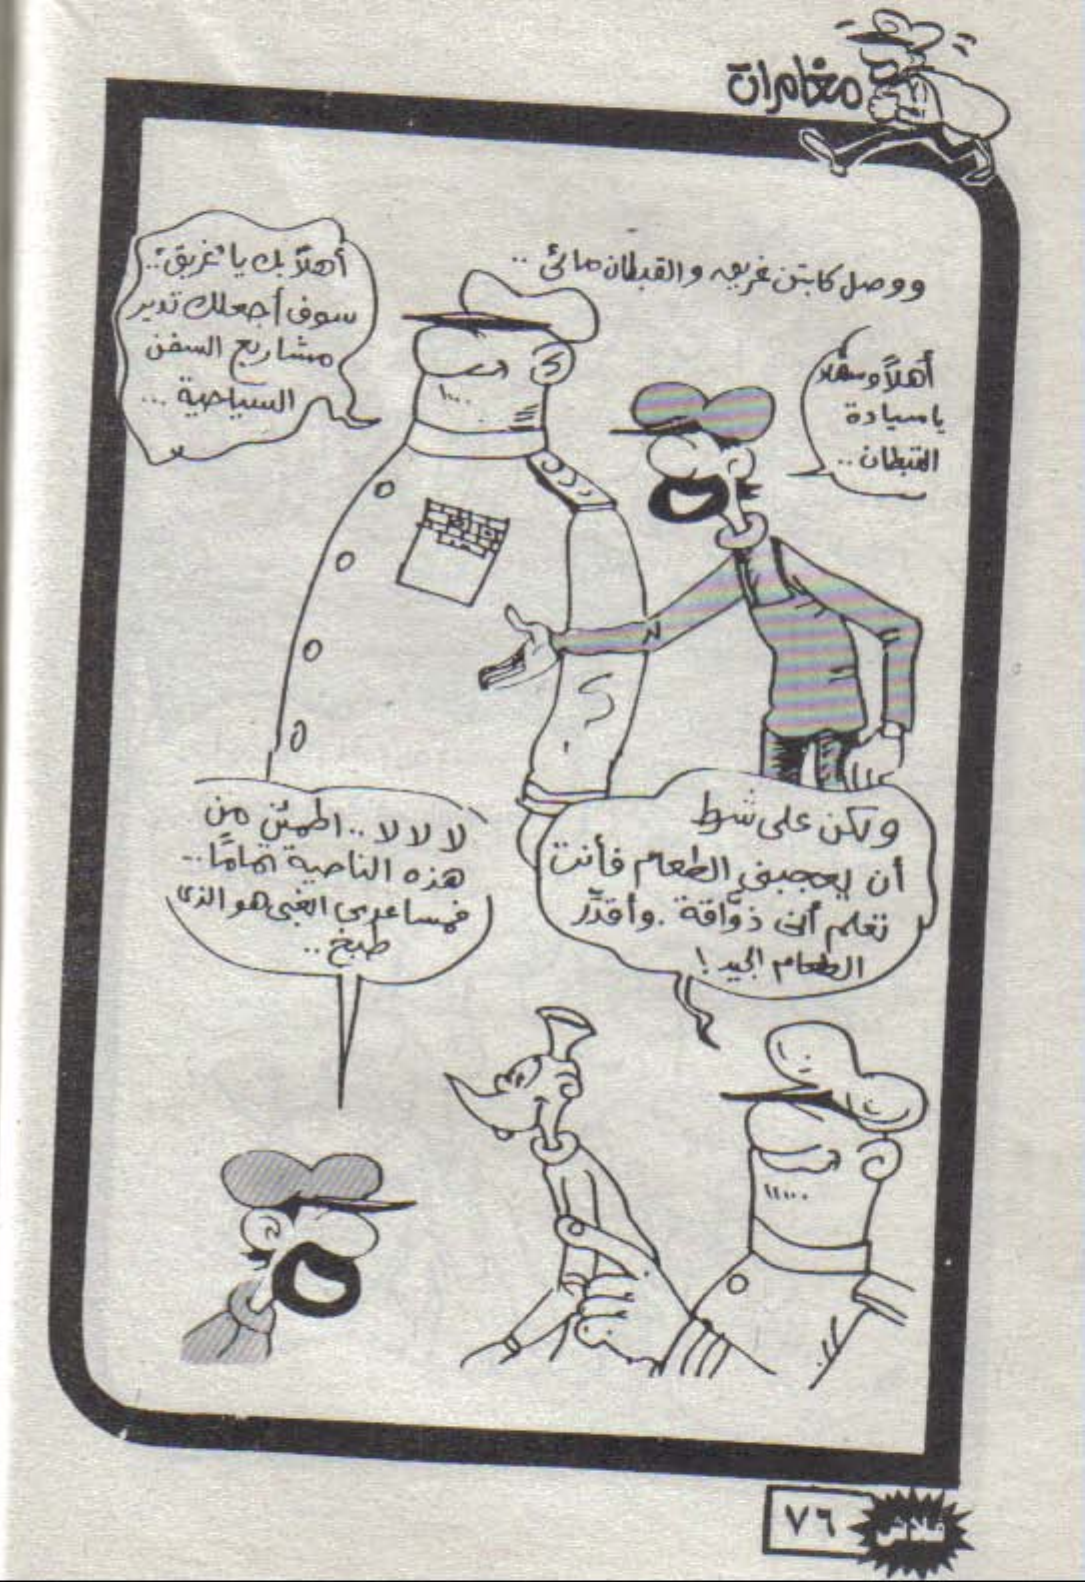 مغامرات
ووصل كابتن غريق والقبطان مائى ..
أهلاً وسهلاً
يا سيادة
القبطان ..
أهلاً بك يا "غريق" ..
سوف أجعلك تدير
مشاريع السفن
السياحية ...
ولكن على شرط
أن يعجبنى الطعام فأنت
تعلم أنى ذوّاقة . وأقدِّر
الطعام الجيد !
لا لا لا .. اطمئن من
هذه الناحية تمامًا ..
فمساعدى الغبى هو الذى
طبخ ..
٧٦
فلاش